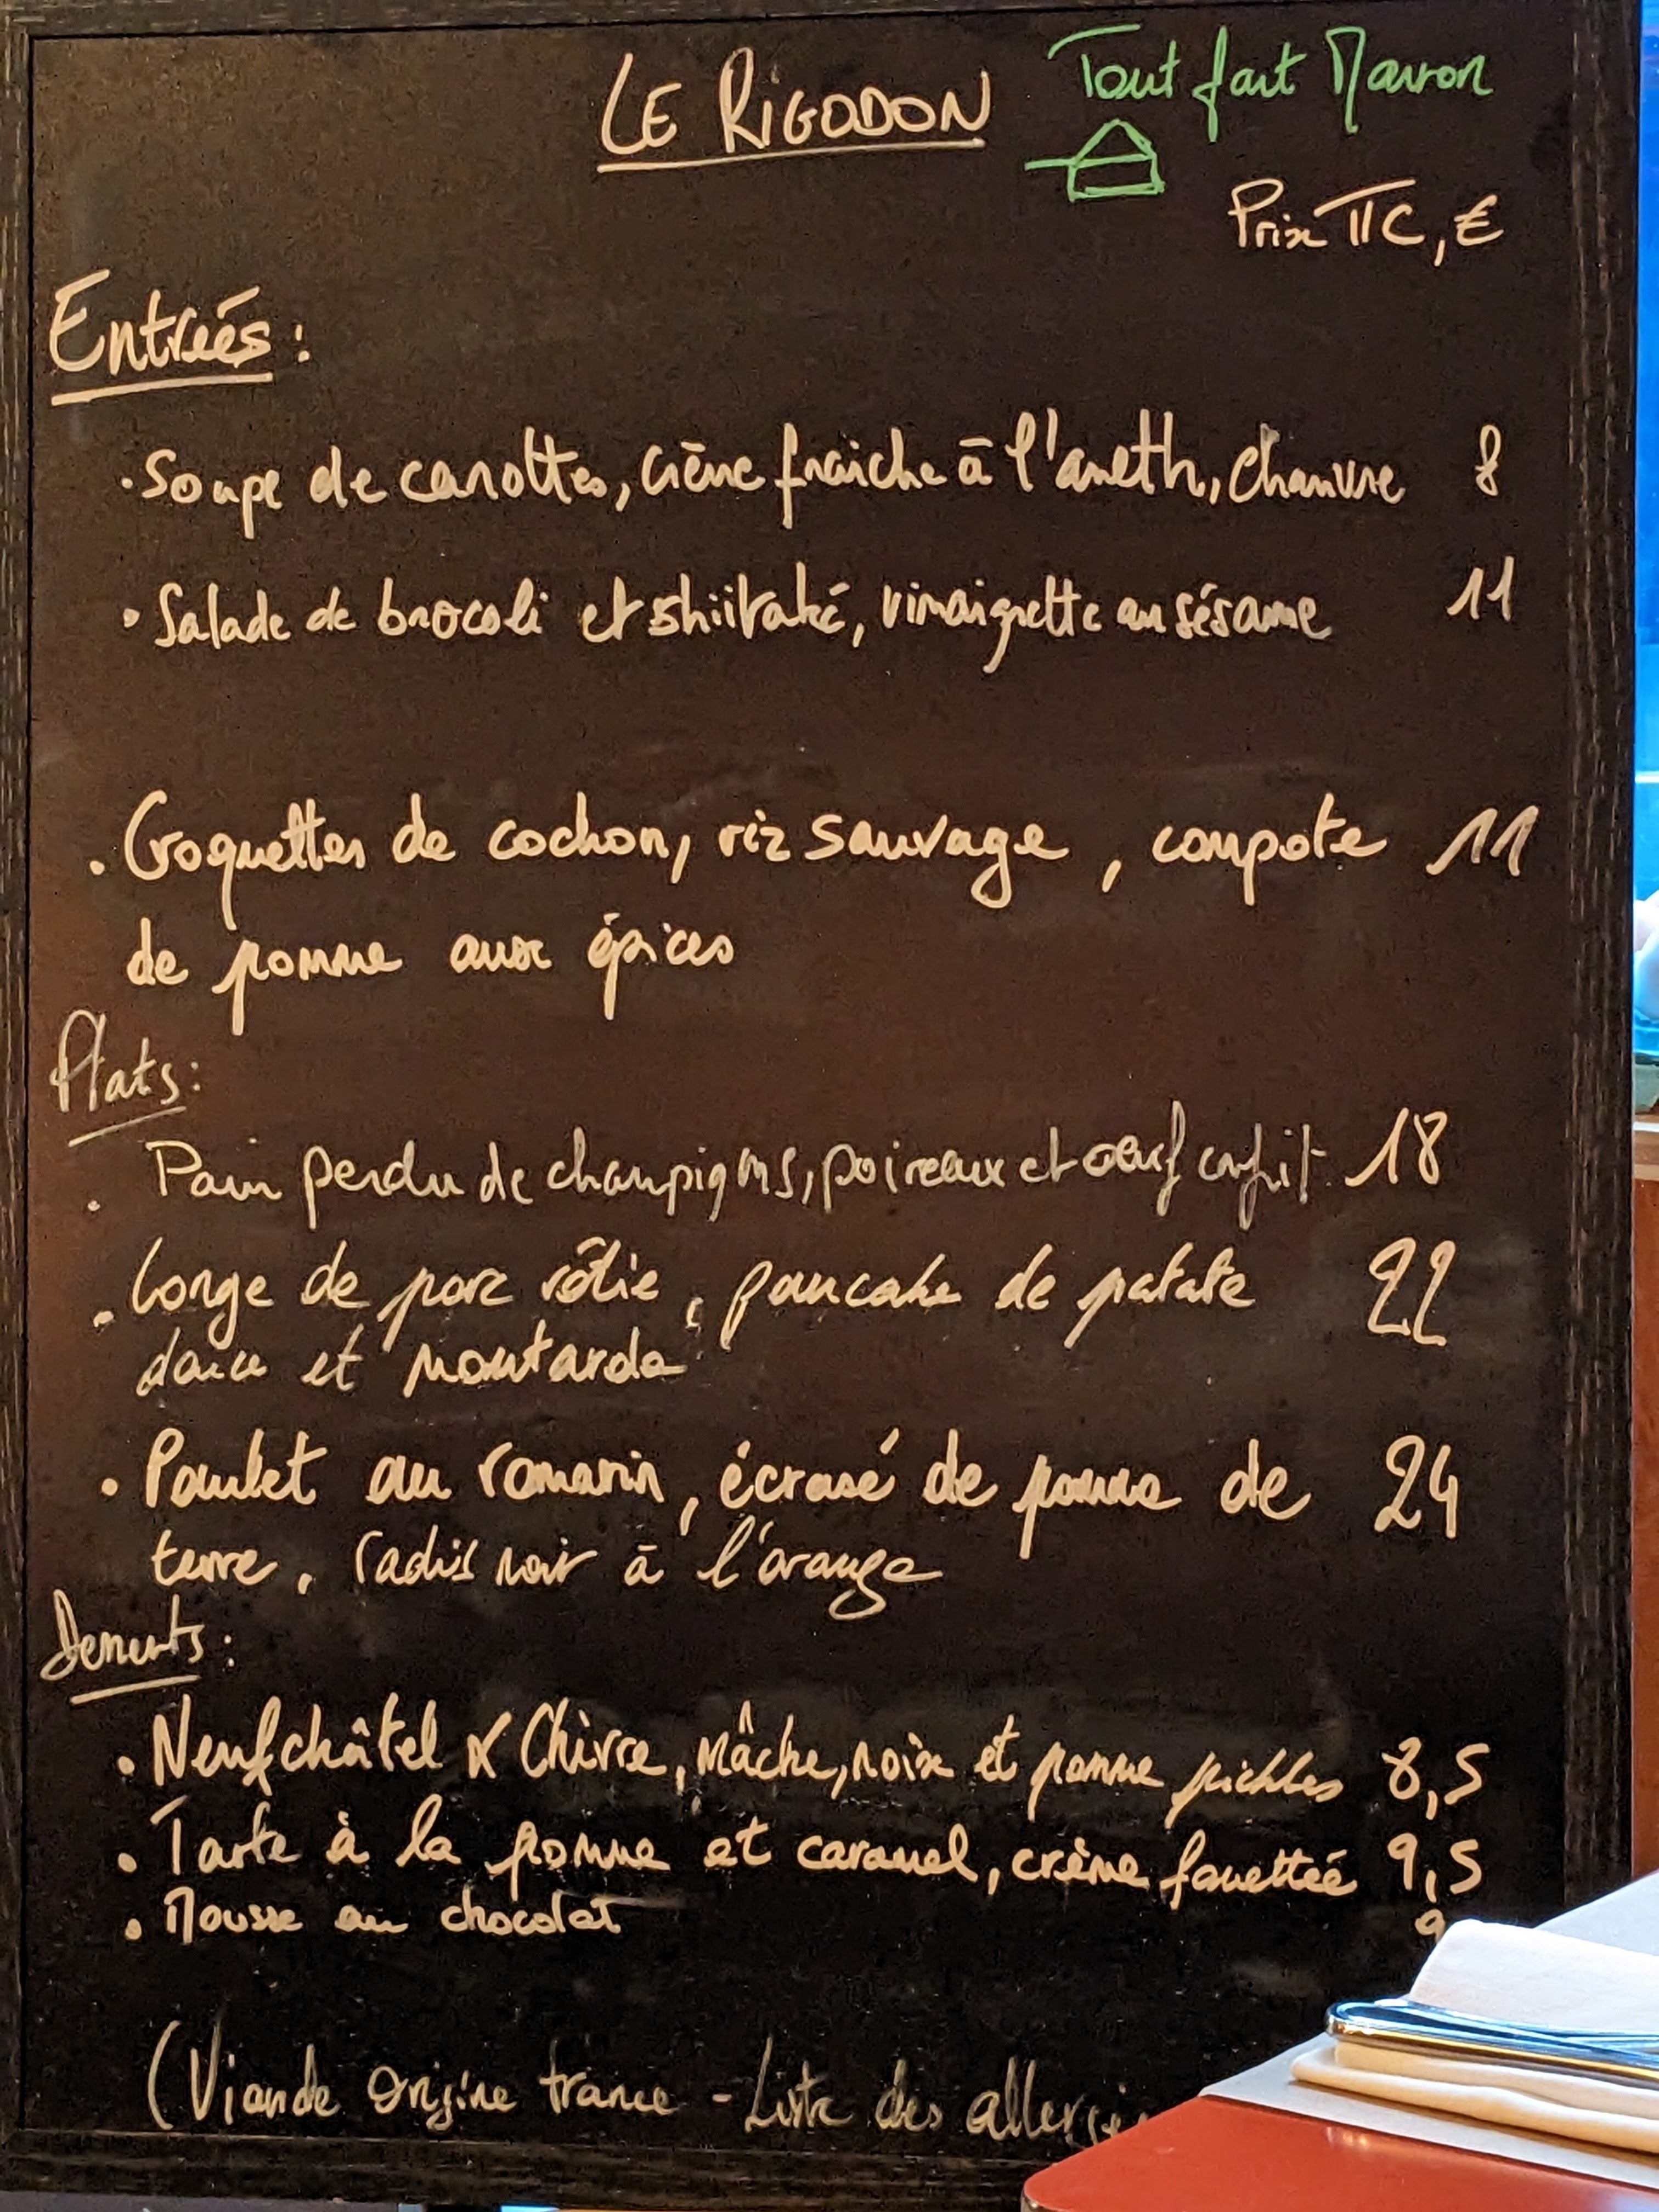 LE RIGODON
Tout fait Maison
Prix TTC, €
Entrées :
· Soupe de carottes, crème fraîche à l'aneth, chanvre 8
· Salade de brocoli et shiitaké, vinaigrette au sésame 11
· Croquettes de cochon, riz sauvage, compote 11
de pomme aux épices
Plats :
· Pain perdu de champignons, poireaux et œuf confit 18
· Longe de porc rôtie, pancake de patate 22
douce et moutarde
· Poulet au romarin, écrasé de pomme de 24
terre, radis noir à l'orange
Desserts :
· Neufchâtel & Chèvre, mâche, noix et pomme pickles 8,5
· Tarte à la pomme et caramel, crème fouettée 9,5
· Mousse au chocolat 9
(Viande origine France - Liste des